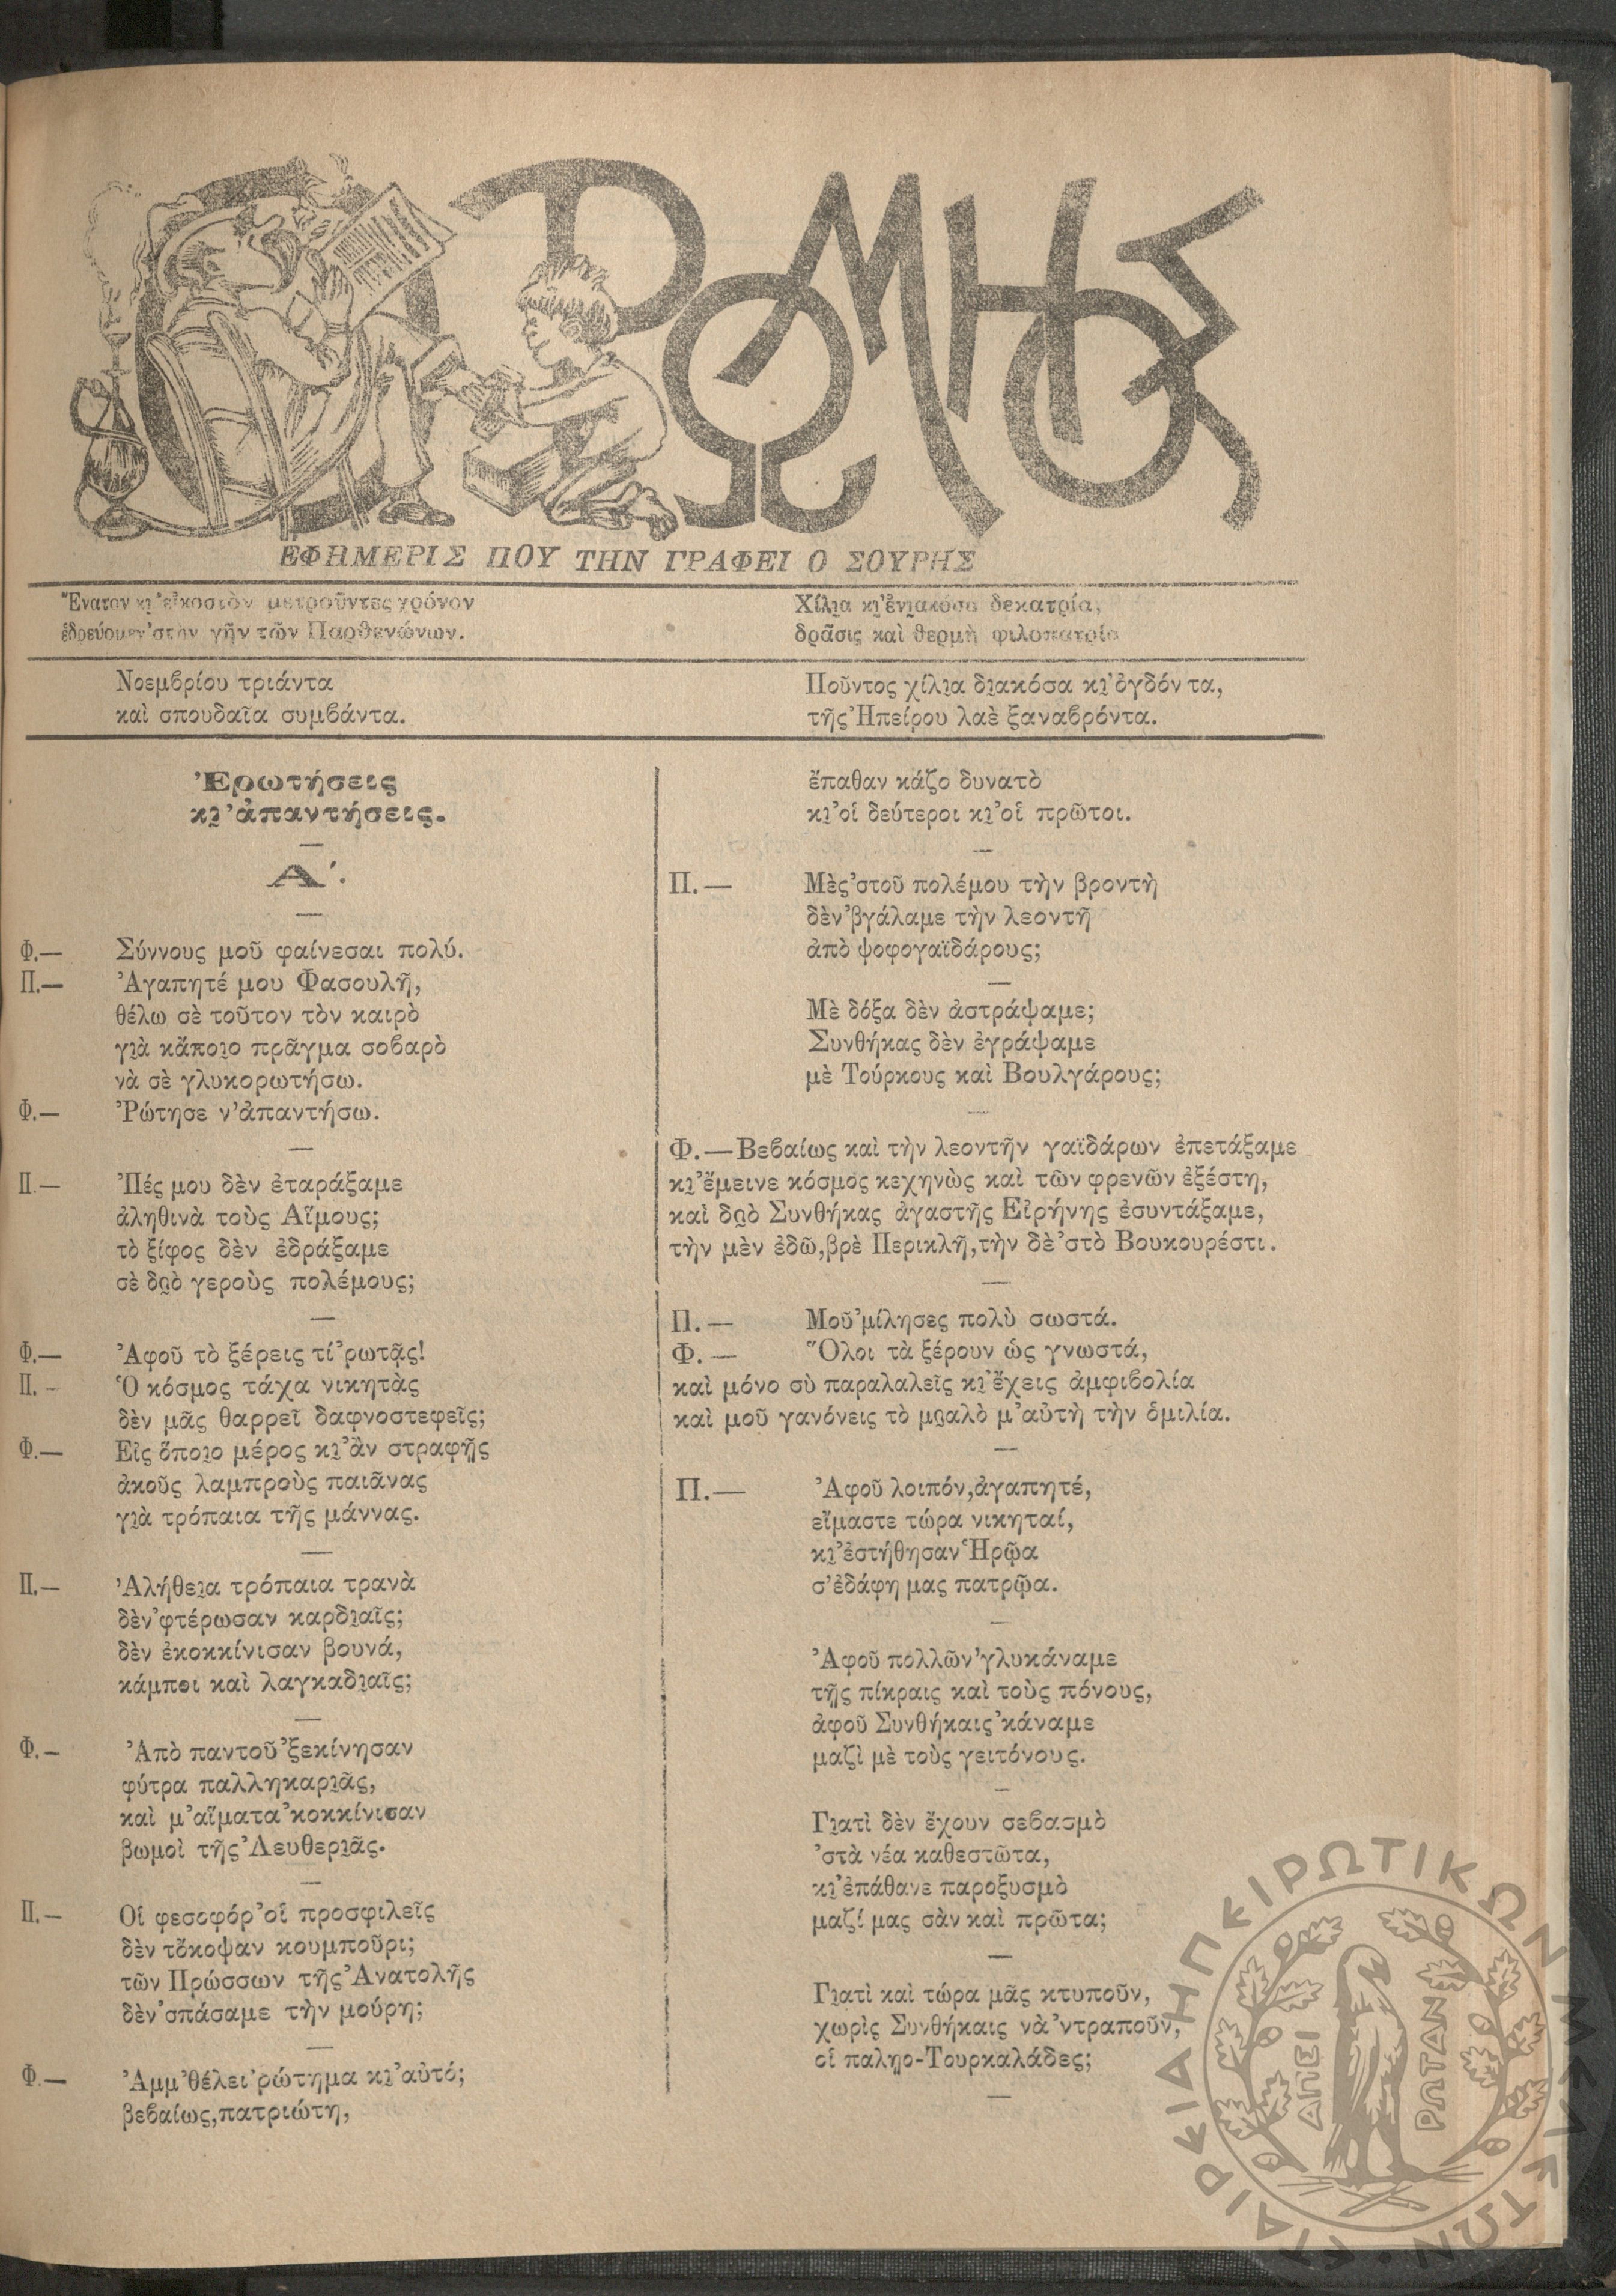 Ο ΡΩΜΗΟΣ
ΕΦΗΜΕΡΙΣ ΠΟΥ ΤΗΝ ΓΡΑΦΕΙ Ο ΣΟΥΡΗΣ
Ἔνατον κι̯’ εἰκοστὸν μετροῦντες χρόνον
ἑδρεύομεν ’στὴν γῆν τῶν Παρθενώνων.
Χίλι̯α κι̯’ ἐνι̯ακόσα δεκατρία,
δρᾶσις καὶ θερμὴ φιλοπατρία
Νοεμβρίου τριάντα
καὶ σπουδαῖα συμβάντα.
Ποῦντος χίλι̯α δι̯ακόσα κι̯’ ὀγδόντα,
τῆς Ἠπείρου λαὲ ξαναβρόντα.
Ἐρωτήσεις
κι̯’ ἀπαντήσεις.
Α΄.
Φ.— Σύννους μοῦ φαίνεσαι πολύ.
Π.— Ἀγαπητέ μου Φασουλῆ,
θέλω σὲ τοῦτον τὸν καιρὸ
γι̯ὰ κἄποι̯ο πρᾶγμα σοβαρὸ
νὰ σὲ γλυκορωτήσω.
Φ.— Ῥώτησε ν’ ἀπαντήσω.
Π.— Πές μου δὲν ἐταράξαμε
ἀληθινὰ τοὺς Αἵμους;
τὸ ξίφος δὲν ἐδράξαμε
σὲ δυ̯ὸ γεροὺς πολέμους;
Φ.— Ἀφοῦ τὸ ξέρεις τί ’ρωτᾷς!
Π.— Ὁ κόσμος τάχα νικητὰς
δὲν μᾶς θαρρεῖ δαφνοστεφεῖς;
Φ.— Εἰς ὅποι̯ο μέρος κι̯’ ἂν στραφῇς
ἀκοῦς λαμπροὺς παιᾶνας
γι̯ὰ τρόπαια τῆς μάννας.
Π.— Ἀλήθει̯α τρόπαια τρανὰ
δὲν ’φτέρωσαν καρδι̯αῖς;
δὲν ἐκοκκίνισαν βουνά,
κάμποι καὶ λαγκαδι̯αῖς;
Φ.— Ἀπὸ παντοῦ ’ξεκίνησαν
φύτρα παλληκαρι̯ᾶς,
καὶ μ’ αἵματα ’κοκκίνισαν
βωμοὶ τῆς ’Λευθερι̯ᾶς.
Π.— Οἱ φεσοφόρ’ οἱ προσφιλεῖς
δὲν τὄκοψαν κουμποῦρι;
τῶν Πρώσσων τῆς Ἀνατολῆς
δὲν ’σπάσαμε τὴν μούρη;
Φ.— Ἀμμ’ θέλει ’ρώτημα κι̯’ αὐτό;
βεβαίως, πατριώτη,
ἔπαθαν κάζο δυνατὸ
κι̯’ οἱ δεύτεροι κι̯’ οἱ πρῶτοι.
Π.— Μὲς ’στοῦ πολέμου τὴν βροντὴ
δὲν ’βγάλαμε τὴν λεοντῆ
ἀπὸ ψοφογαϊδάρους;
Μὲ δόξα δὲν ἀστράψαμε;
Συνθήκας δὲν ἐγράψαμε
μὲ Τούρκους καὶ Βουλγάρους;
Φ.— Βεβαίως καὶ τὴν λεοντῆν γαϊδάρων ἐπετάξαμε
κι̯’ ἔμεινε κόσμος κεχηνὼς καὶ τῶν φρενῶν ἐξέστη,
καὶ δυ̯ὸ Συνθήκας ἀγαστῆς Εἰρήνης ἐσυντάξαμε,
τὴν μὲν ἐδῶ, βρὲ Περικλῆ, τὴν δὲ ’στὸ Βουκουρέστι.
Π.— Μοῦ ’μίλησες πολὺ σωστά.
Φ.— Ὅλοι τὰ ξέρουν ὡς γνωστά,
καὶ μόνο σὺ παραλαλεῖς κι̯’ ἔχεις ἀμφιβολία
καὶ μοῦ γανόνεις τὸ μυ̯αλὸ μ’ αὐτὴ τὴν ὁμιλία.
Π.— Ἀφοῦ λοιπόν, ἀγαπητέ,
εἴμαστε τώρα νικηταί,
κι̯’ ἐστήθησαν Ἡρῷα
σ’ ἐδάφη μας πατρῷα.
Ἀφοῦ πολλῶν ’γλυκάναμε
τῇς πίκραις καὶ τοὺς πόνους,
ἀφοῦ Συνθήκαις ’κάναμε
μαζὶ μὲ τοὺς γειτόνους.
Γι̯ατὶ δὲν ἔχουν σεβασμὸ
’στὰ νέα καθεστῶτα,
κι̯’ ἐπάθανε παροξυσμὸ
μαζί μας σὰν καὶ πρῶτα;
Γι̯ατὶ καὶ τώρα μᾶς κτυποῦν,
χωρὶς Συνθήκαις νὰ ’ντραποῦν,
οἱ παλῃο-Τουρκαλάδες;
ΕΤΑΙΡΕΙΑ ΗΠΕΙΡΩΤΙΚΩΝ ΜΕΛΕΤΩΝ
ΑΠΕΙ
ΡΩΤΑΝ